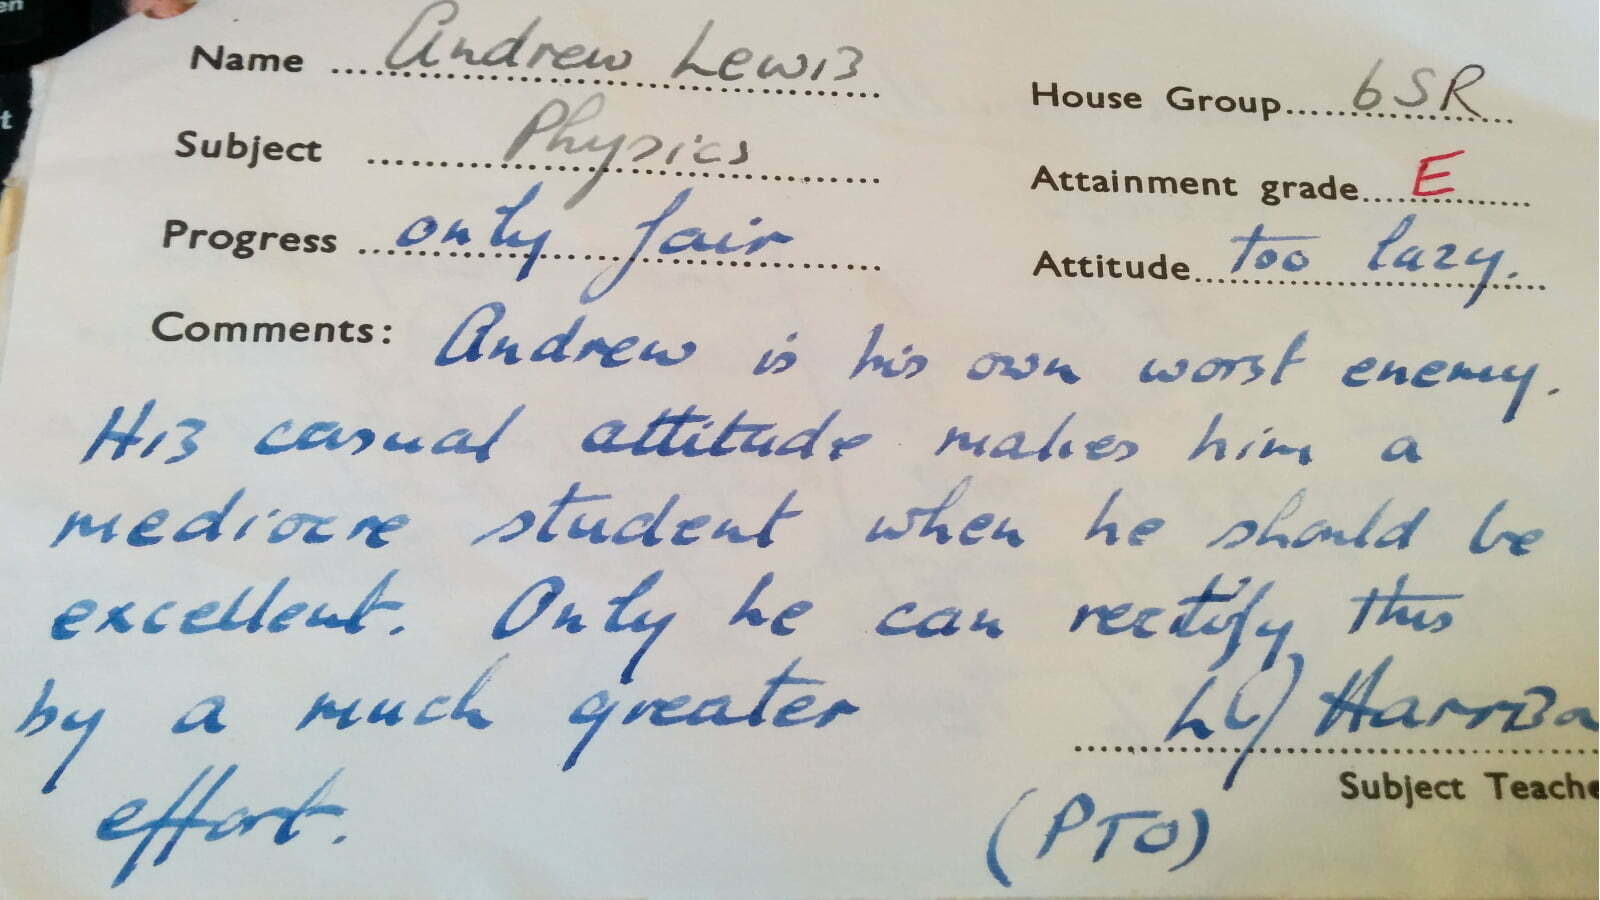 Name Andrew Lewis
House Group 6SR
Subject Physics
Attainment grade E
Progress only fair
Attitude too lazy.
Comments: Andrew is his own worst enemy.
His casual attitude makes him a
mediocre student when he should be
excellent. Only he can rectify this
by a much greater
effort.
Harriso
Subject Teache
(PTO)